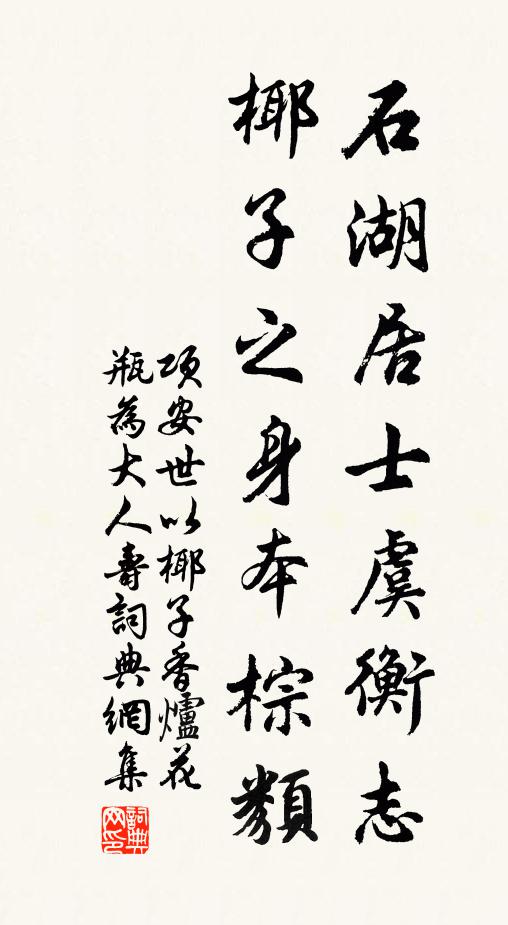 石湖居士虞衡志
椰子之身本棕類
項安世以椰子香爐花
瓶為大人壽詞典網集
詞典
网印